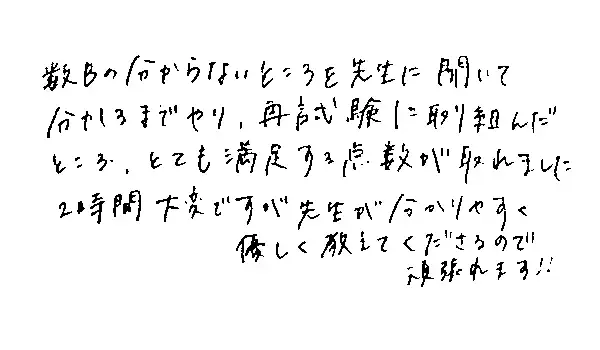 数Bの分からないところを先生に聞いて
分かるまでやり、再試験に取り組んだ
ところ、とても満足する点数が取れました
2時間大変ですが先生が分かりやすく
優しく教えてくださるので
頑張れます!!